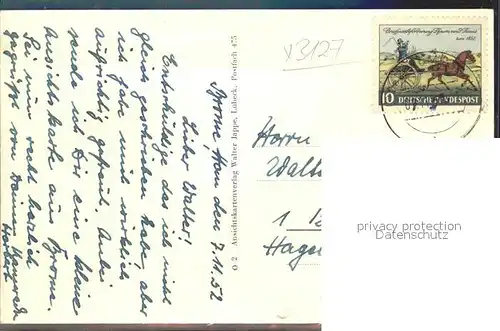 Grome, Han den 7.11.52
Lieber Walter!
Entschuldige das ich nicht
gleich geschrieben habe aber
ich habe mich wirklich
aufrichtig gefreut. Anbei
sende ich Dir eine kleine
Ansichtskarte aus Grome.
Sei nun recht herzlich
gegrüßt von Deinem Kamerad
Herbert
O 2 Ansichtskartenverlag Walter Jappe, Lübeck, Postfach 475
x3127
von 1852
10 DEUTSCHE BUNDESPOST
Herrn
1
privacy protection
Datenschutz